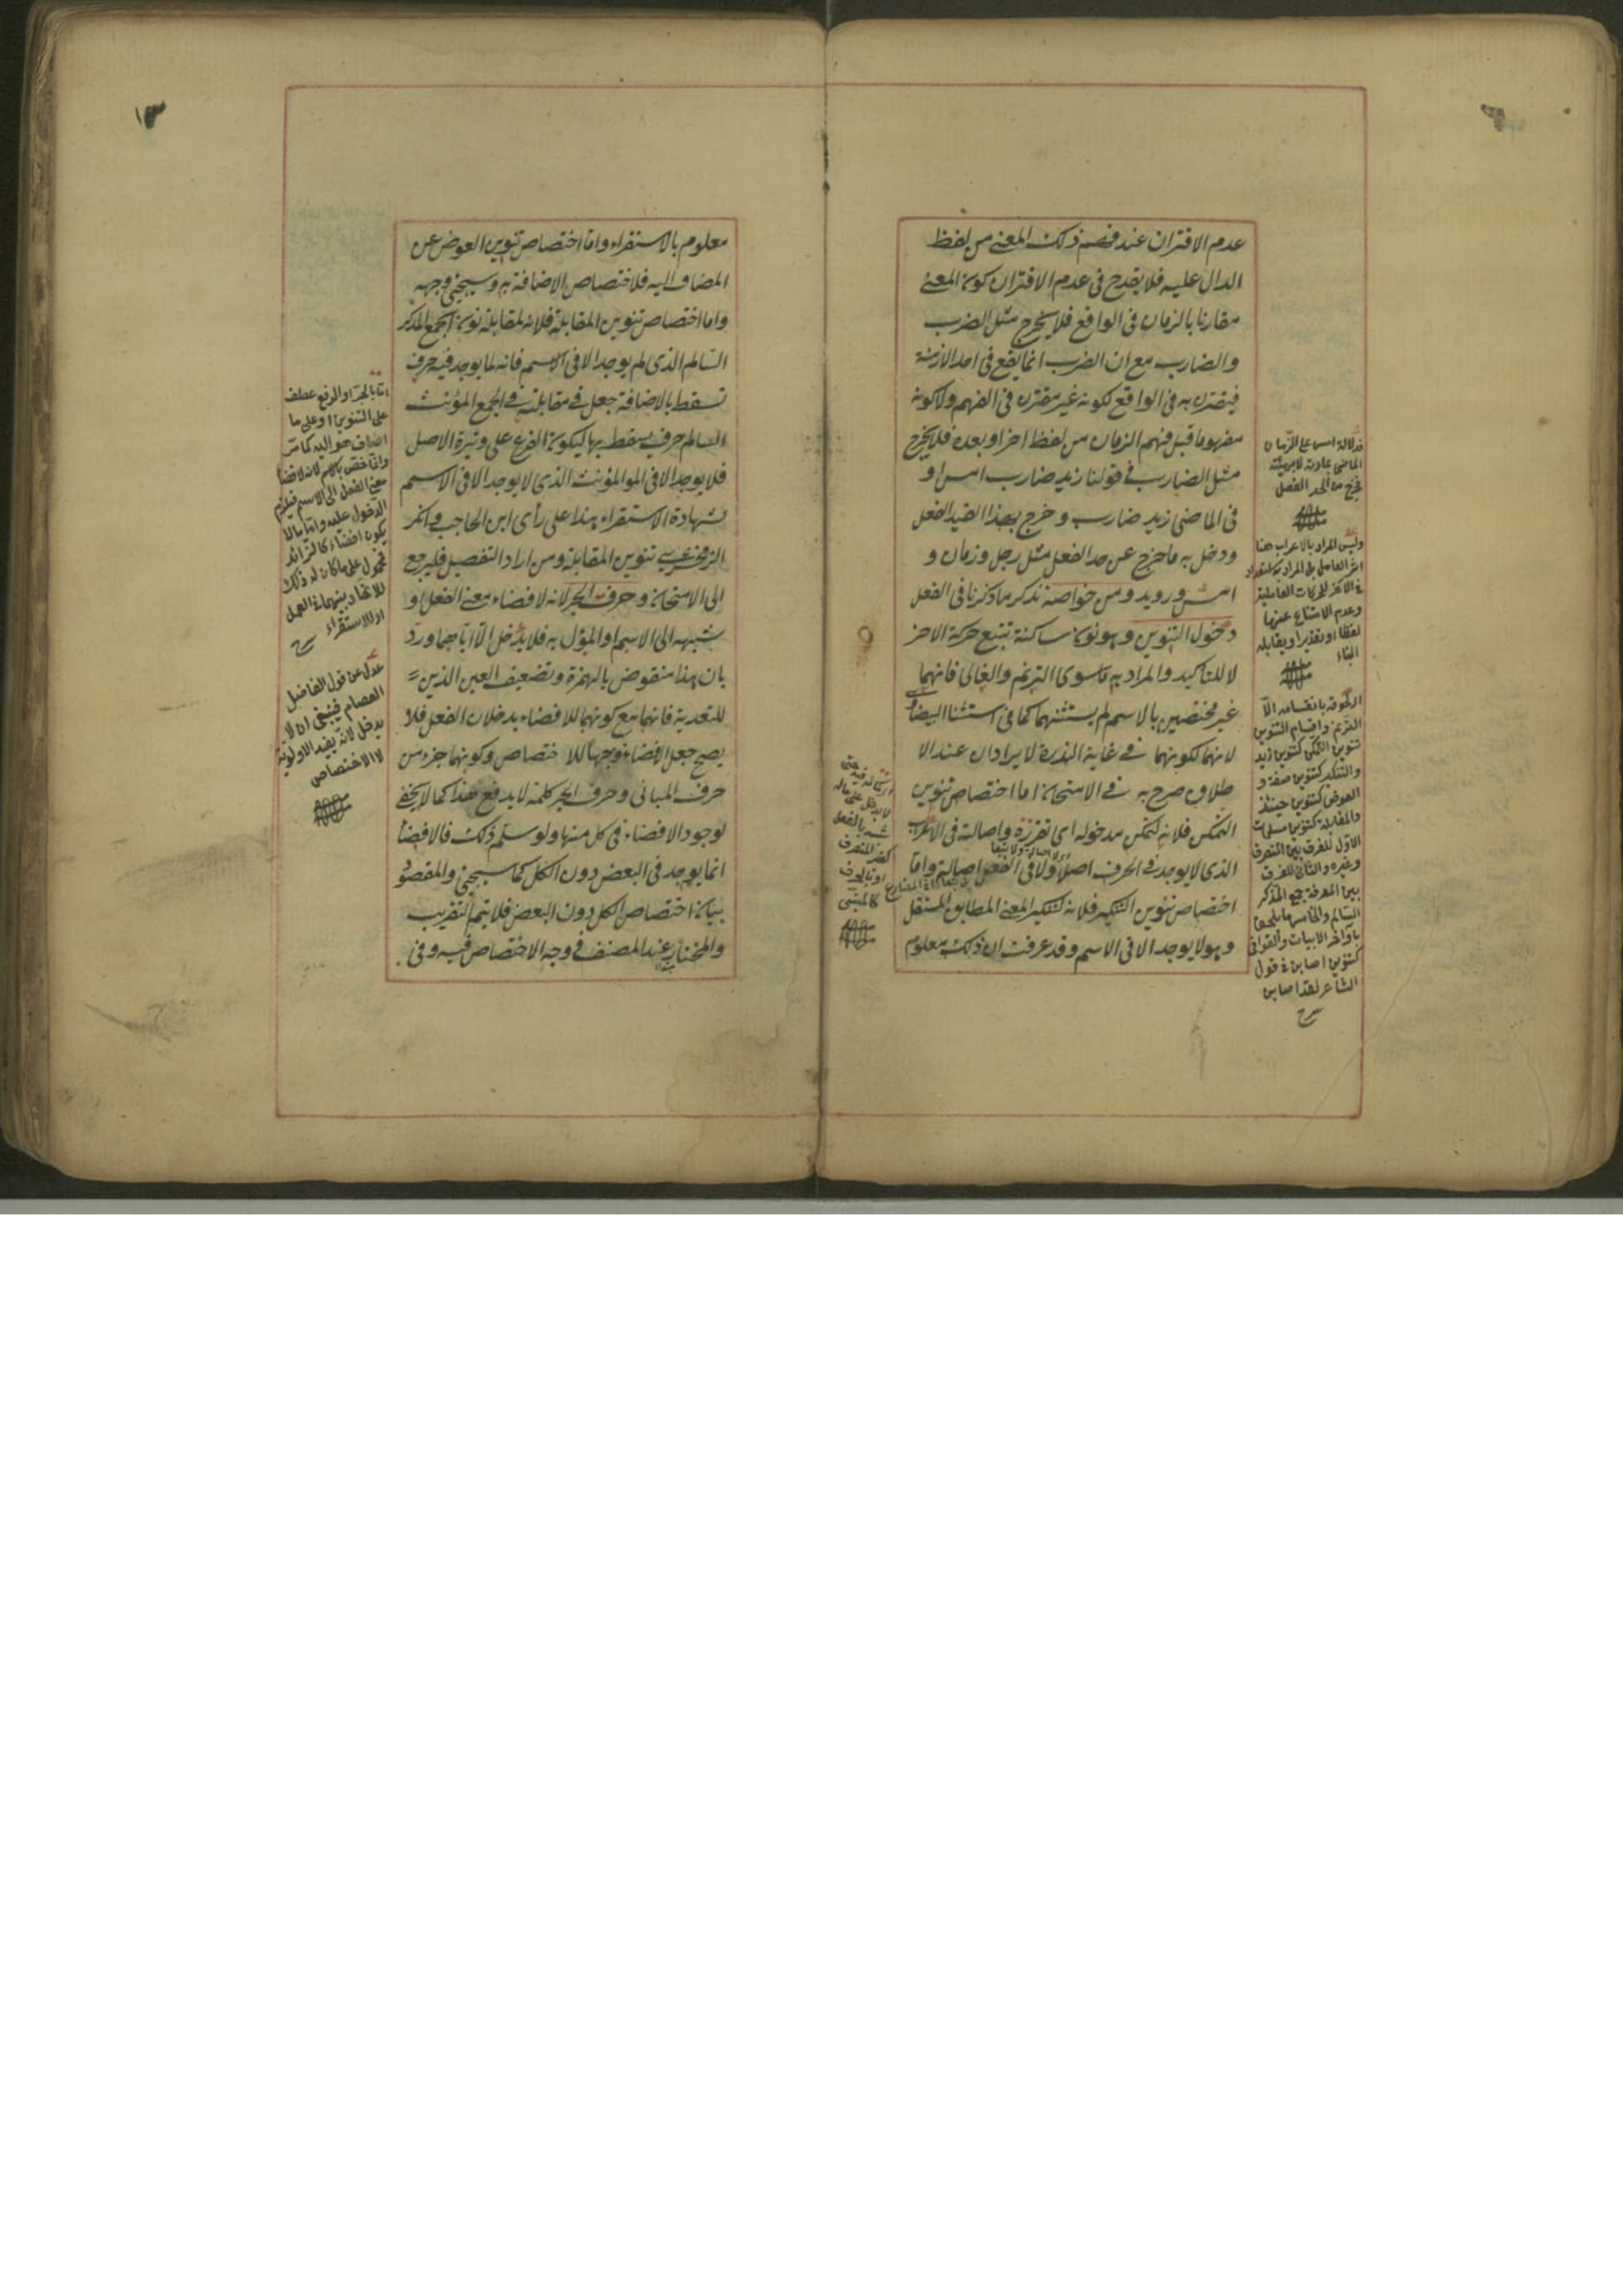 عدم الاقتران عند فهم ذلك المعنى من لفظ
الدال عليه فلا يقدح فى عدم الاقتران كون المعنى
مقارنا بالزمان فى الواقع فلا يخرج مثل الضرب
والضارب مع ان الضرب انما يقع فى احد الازمنة
فيقترن به فى الواقع لكونه غير مقترن فى الفهم ولا كونه
مفهوما قبل فهم الزمان من لفظ اخر او بعده فلا يخرج
مثل الضارب فى قولنا زيد ضارب امس او
فى الماضى زيد ضارب وخرج بهذا القيد الفعل
ودخل به ما خرج عن حد الفعل مثل رجل وزمان و
امس ورويد ومن خواصه نذكر ما ذكرنا فى الفعل
دخول التنوين وهو نون ساكنة تتبع حركة الاخر
لا للتاكيد والمراد به ما سوى الترنم والغالى فانهما
غير مختصين بالاسم لم يستثنهما كما فى استثنا البيضاوى
لانهما لكونهما فى غاية الندرة لا يرادان عند الا
طلاق صرح به فى الامتحان اما اختصاص تنوين
التمكن فلانه لتمكن مدخوله اى تقرره واصالته فى الاعراب
الذى لا يوجد فى الحرف اصلا ولا فى الفعل اصالة واما
اختصاص تنوين التنكير فلانه لتنكير المعنى المطابق المستقل
وهو لا يوجد الا فى الاسم وقد عرفت ان ذلك معلوم
فدلالة امس على الزمان
الماضى عادية لا
يخرج من الحد الفعل
وليس المراد بالاعراب هنا
اثر العامل بل المراد به
فى الاخر للحركات العاملية
وعدم الامتناع عنها
لفظا او تقديرا ويقابله
البناء
الترنم واقسام التنوين
تنوين التمكن كتنوين زيد
والتنكير كتنوين صه و
العوض كتنوين حينئذ
والمقابلة كتنوين مسلمات
الاول للفرق بين المنصرف
وغيره والثانى للفرق
بين المعرفة جمع المذكر
السالم والخامس ما يلحق
باواخر الابيات والقوافى
كتنوين اصابن فى قول
الشاعر لقد اصابن
١٣
معلوم بالاستقراء واما اختصاص تنوين العوض عن
المضاف اليه فلاختصاص الاضافة به وسيجئ وجهه
واما اختصاص تنوين المقابلة فلانه لمقابلة نون الجمع المذكر
السالم الذى لم يوجد الا فى الاسم فانه لما يوجد فيه حرف
تسقط بالاضافة جعل فى مقابلته فى الجمع المؤنث
السالم حرف يسقط بها ليكون الفرع على وتيرة الاصل
فلا يوجد الا فى المؤنث الذى لا يوجد الا فى الاسم
بشهادة الاستقراء هذا على رأى ابن الحاجب وانكر
الزمخشرى تنوين المقابلة ومن اراد التفصيل فليرجع
الى الامتحان وحرف الجر لانه لافضاء معنى الفعل او
شبهه الى الاسم او المؤل به فلا يدخل الا اياهما ورد
بان هذا منقوض بالهمزة وتضعيف العين الذين
للتعدية فانهما مع كونهما للافضاء يدخلان الفعل فلا
يصح جعل الافضاء وجها للاختصاص وكونهما جزء من
حرف المبانى وحرف الجر كلمة لا يدفع هذا كما لا يخفى
لوجود الافضاء فى كل منها ولو سلم ذلك فالافضا
انما يوجد فى البعض دون الكل كما سيجئ والمقصود
بيان اختصاص الكل دون البعض فلا يتم التقريب
والمختار عند المصنف فى وجه الاختصاص فيه وفى
اما بالجر او الرفع عطف
على التنوين او على ما
اضاف هو اليه كما مر
وانما خص بالاسم لانه لافضا
معنى الفعل الى الاسم فيلزم
الدخول عليه واما ما لا
يكون افضاء كالزائد
فمحمول على ما كان له ذلك
للاتحاد بينهما فى العمل
او للاستقراء
عدل عن قول الفاضل
العصام فينبغى ان لا
يدخل لانه يفيد الاولوية
لا الاختصاص